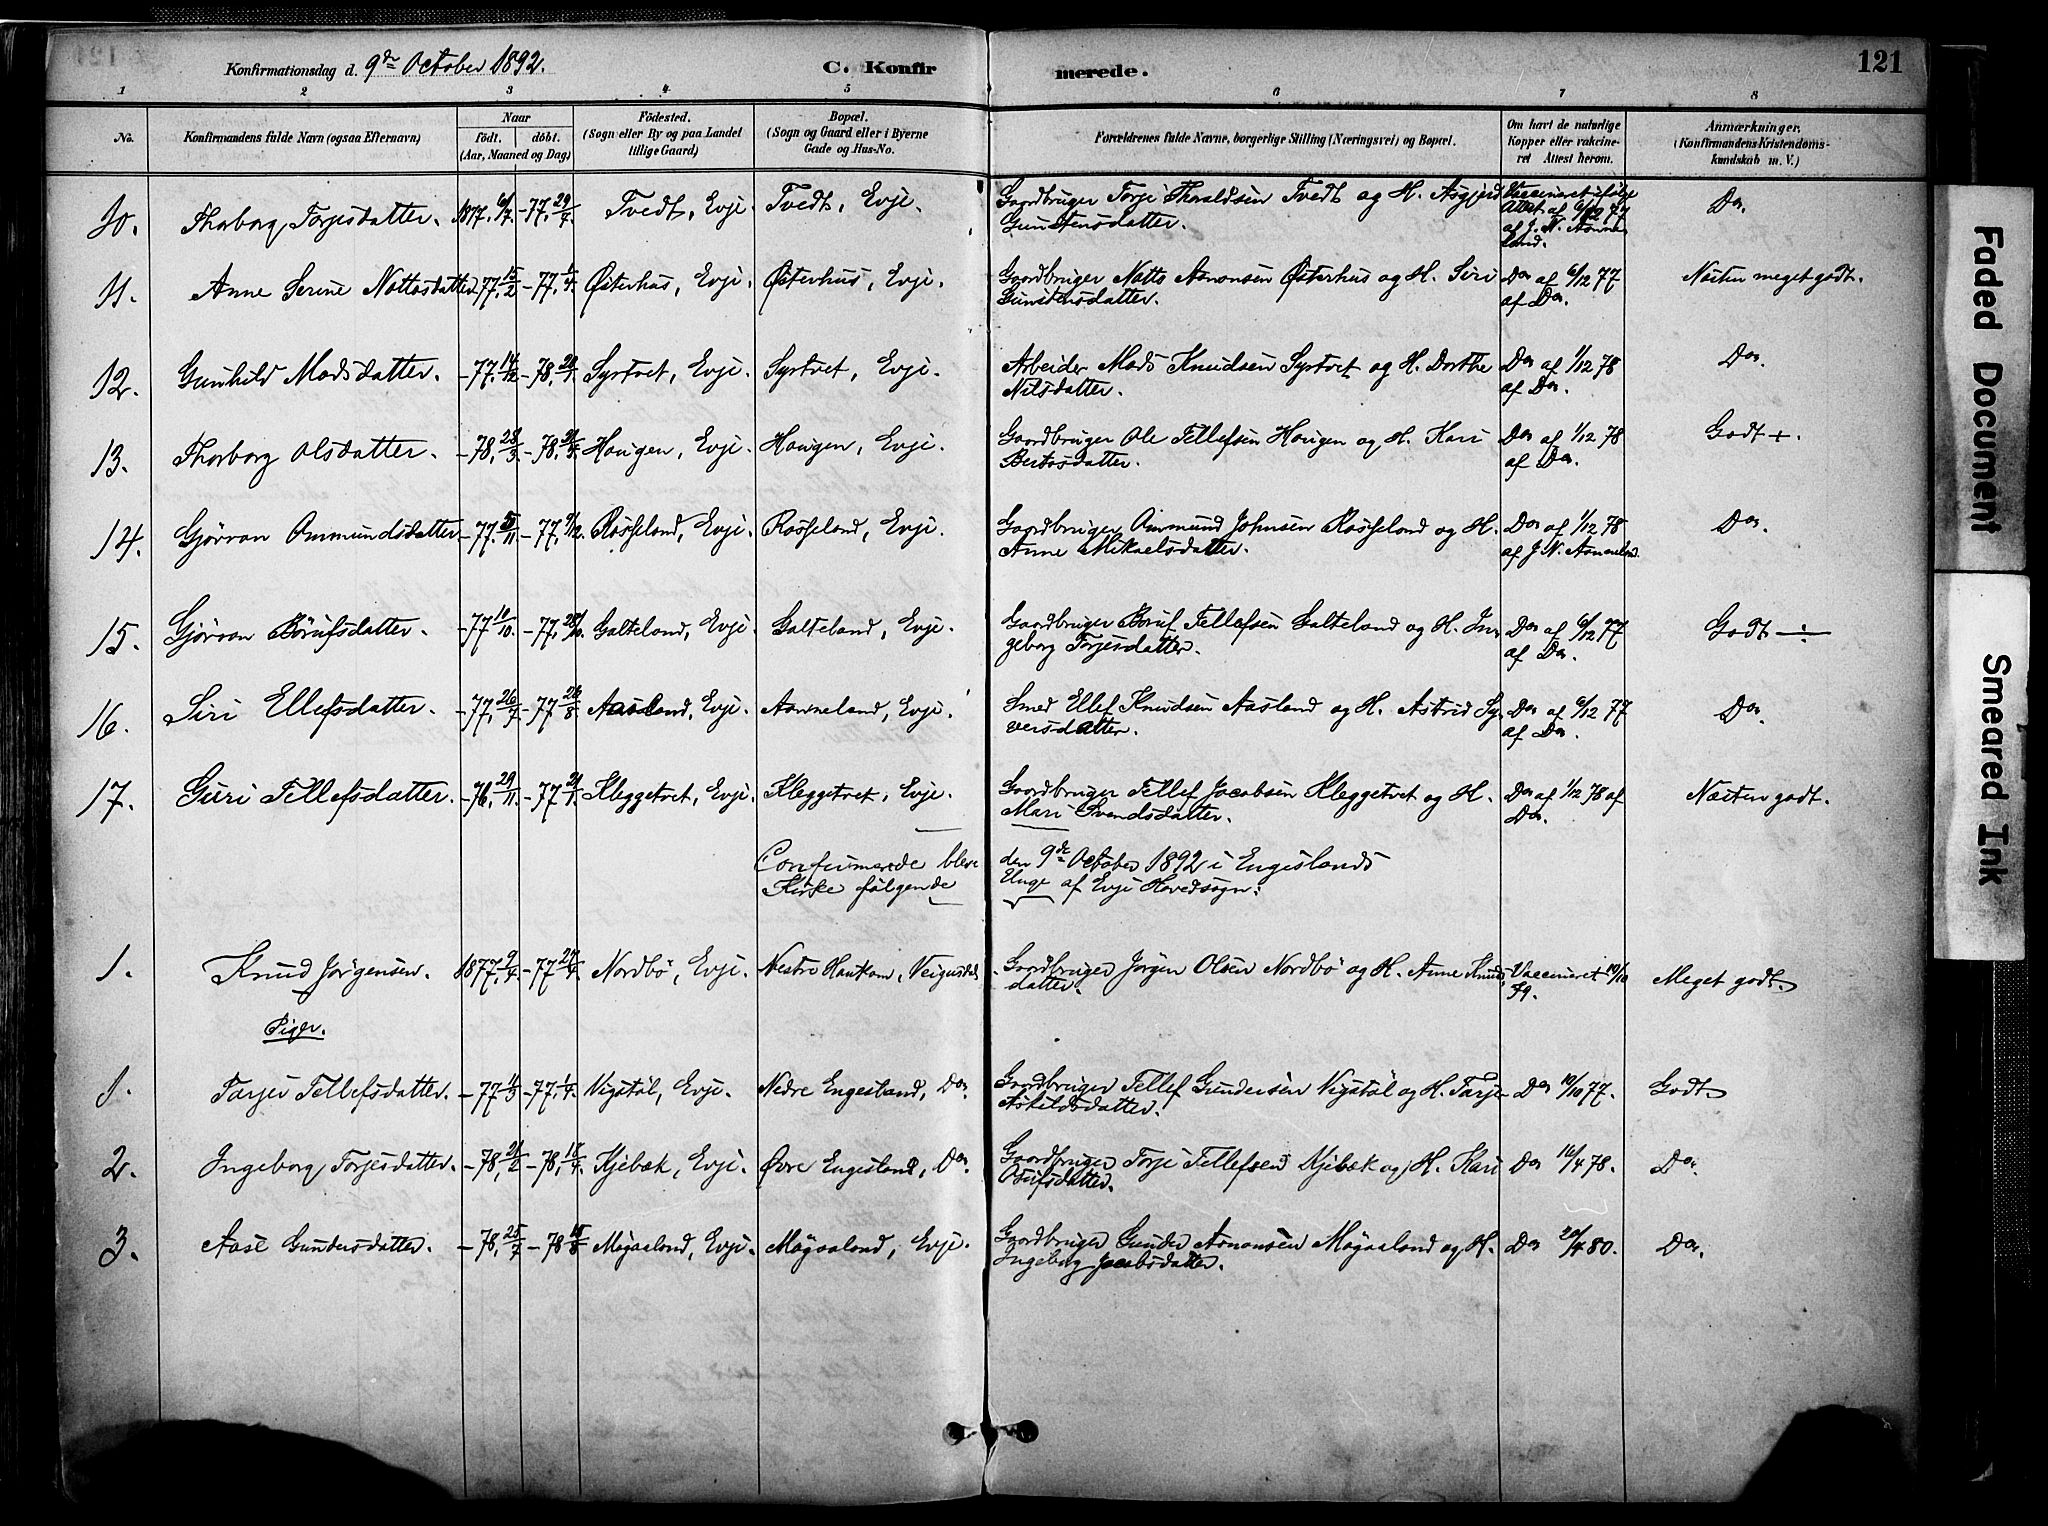 Konfirmationsdag d. 9de October 1892.
C. Konfirmerede.
121
1 2 3 4 5 6 7 8
No.
Konfirmandens fulde Navn (ogsaa Efternavn)
Naar
födt. döbt.
(Aar, Maaned og Dag)
Födested.
(Sogn eller By og paa Landet
tillige Gaard)
Bopæl.
(Sogn og Gaard eller i Byerne
Gade og Hus-No.
Forældrenes fulde Navne, borgerlige Stilling (Næringsvei) og Bopæl.
Om havt de naturlige
Kopper eller vakcine-
ret Attest herom.
Anmærkninger.
(Konfirmandens Kristendoms-
kundskab m. V.)
10. Thorborg Torjesdatter. 1877. 6/7. -77. 29/7. Tvedt, Evje. Tvedt, Evje. Gaardbruger Torje Thoraldsen Tvedt og H. Asgjerd
Gunstensdatter.
Vaccineret ifölge
Attest af 6/12 77
af J. N. Aamne-
land.
Do.
11. Anne Serine Nottosdatter -77. 15/2 -77. 1/4. Østerhus, Evje. Østerhus, Evje. Gaardbruger Notto Aanonsen Østerhus og H. Siri
Gundersdatter.
Do af 6/12 77
af Do.
Næsten meget godt.
12. Gunhild Madsdatter. -77. 14/12 -78. 20/1. Syrtvet, Evje. Syrtvet, Evje. Arbeider Mads Knudsen Syrtvet og H. Dorthe
Nilsdatter.
Do af 1/12 78
af Do.
Do.
13. Thorborg Olsdatter. -78. 28/3. -78. Haugen, Evje. Haugen, Evje. Gaardbruger Ole Tellefsen Haugen og H. Kari
Do af 1/12 78
af Do.
Godt +.
14. Gjörvan Ommundsdatter -77. 5/11 -77. 9/12. Rosseland, Evje. Rosseland, Evje. Gaardbruger Ommund Johnsen Rosseland og H.
Anne Mikaelsdatter.
Do af 1/12 78
af J. N. Aamneland.
Do.
15. Gjörvan Börufsdatter. -77 11/10. -77. 28/10. Galteland, Evje. Galteland, Evje. Gaardbruger Böruf Tellefsen Galteland og H. In-
geborg Torjesdatter.
Do af 6/12 77
af Do.
Godt ÷.
16. Siri Ellefsdatter. -77. 26/7 -77 26/8 Aasland, Evje. Aamneland, Evje. Smed Ellef Knudsen Aasland og H. Astrid Sy-
versdatter.
Do af 6/12 77
af Do.
Do.
17. Guri Tellefsdatter. -76. 29/11. -77 21/1. Kleggetvet, Evje. Kleggetvet, Evje. Gaardbruger Tellef Jacobsen Kleggetvet og H.
Mari Svendsdatter.
Do af 1/12 78 af
Do.
Næsten godt.
Confirmerede bleve den 9de October 1892 i Engeslands
Kirke fölgende Unge af Evje Hovedsogn:
1. Knud Jörgensen. 1877. 9/4. -77 29/4. Nordbö, Evje. Nestre Hautkom, Veigusdal, Gaardbruger Jörgen Olsen Nordbö og H. Anne Knuds-
datter.
Vaccineret 10/10
Meget godt.
Piger.
1. Tarjer Tellefsdatter. -77 11/3 -77. 1/4. Vigstöl, Evje. Nedre Engesland, Do. Gaardbruger Tellef Gundersen Vigstöl og H. Tarjer
Askildsdatter.
Do 10/10 77. Godt.
2. Ingeborg Torjesdatter. -78. 21/2 -78. Kjebæk, Evje. Øvre Engesland, Do. Gaardbruger Torje Tellefsen Kjebæk og H. Kari
Osufsdatter.
Do 16/4 78. Do.
3. Aase Gundersdatter. -78. 25/7 -78 18/8 Mögaaland, Evje. Mögaaland, Evje. Gaardbruger Gunder Aanonsen Mögaaland og H.
Ingeborg Jacobsdatter.
Do 20/4 80. Do.
Faded Document
Smeared Ink